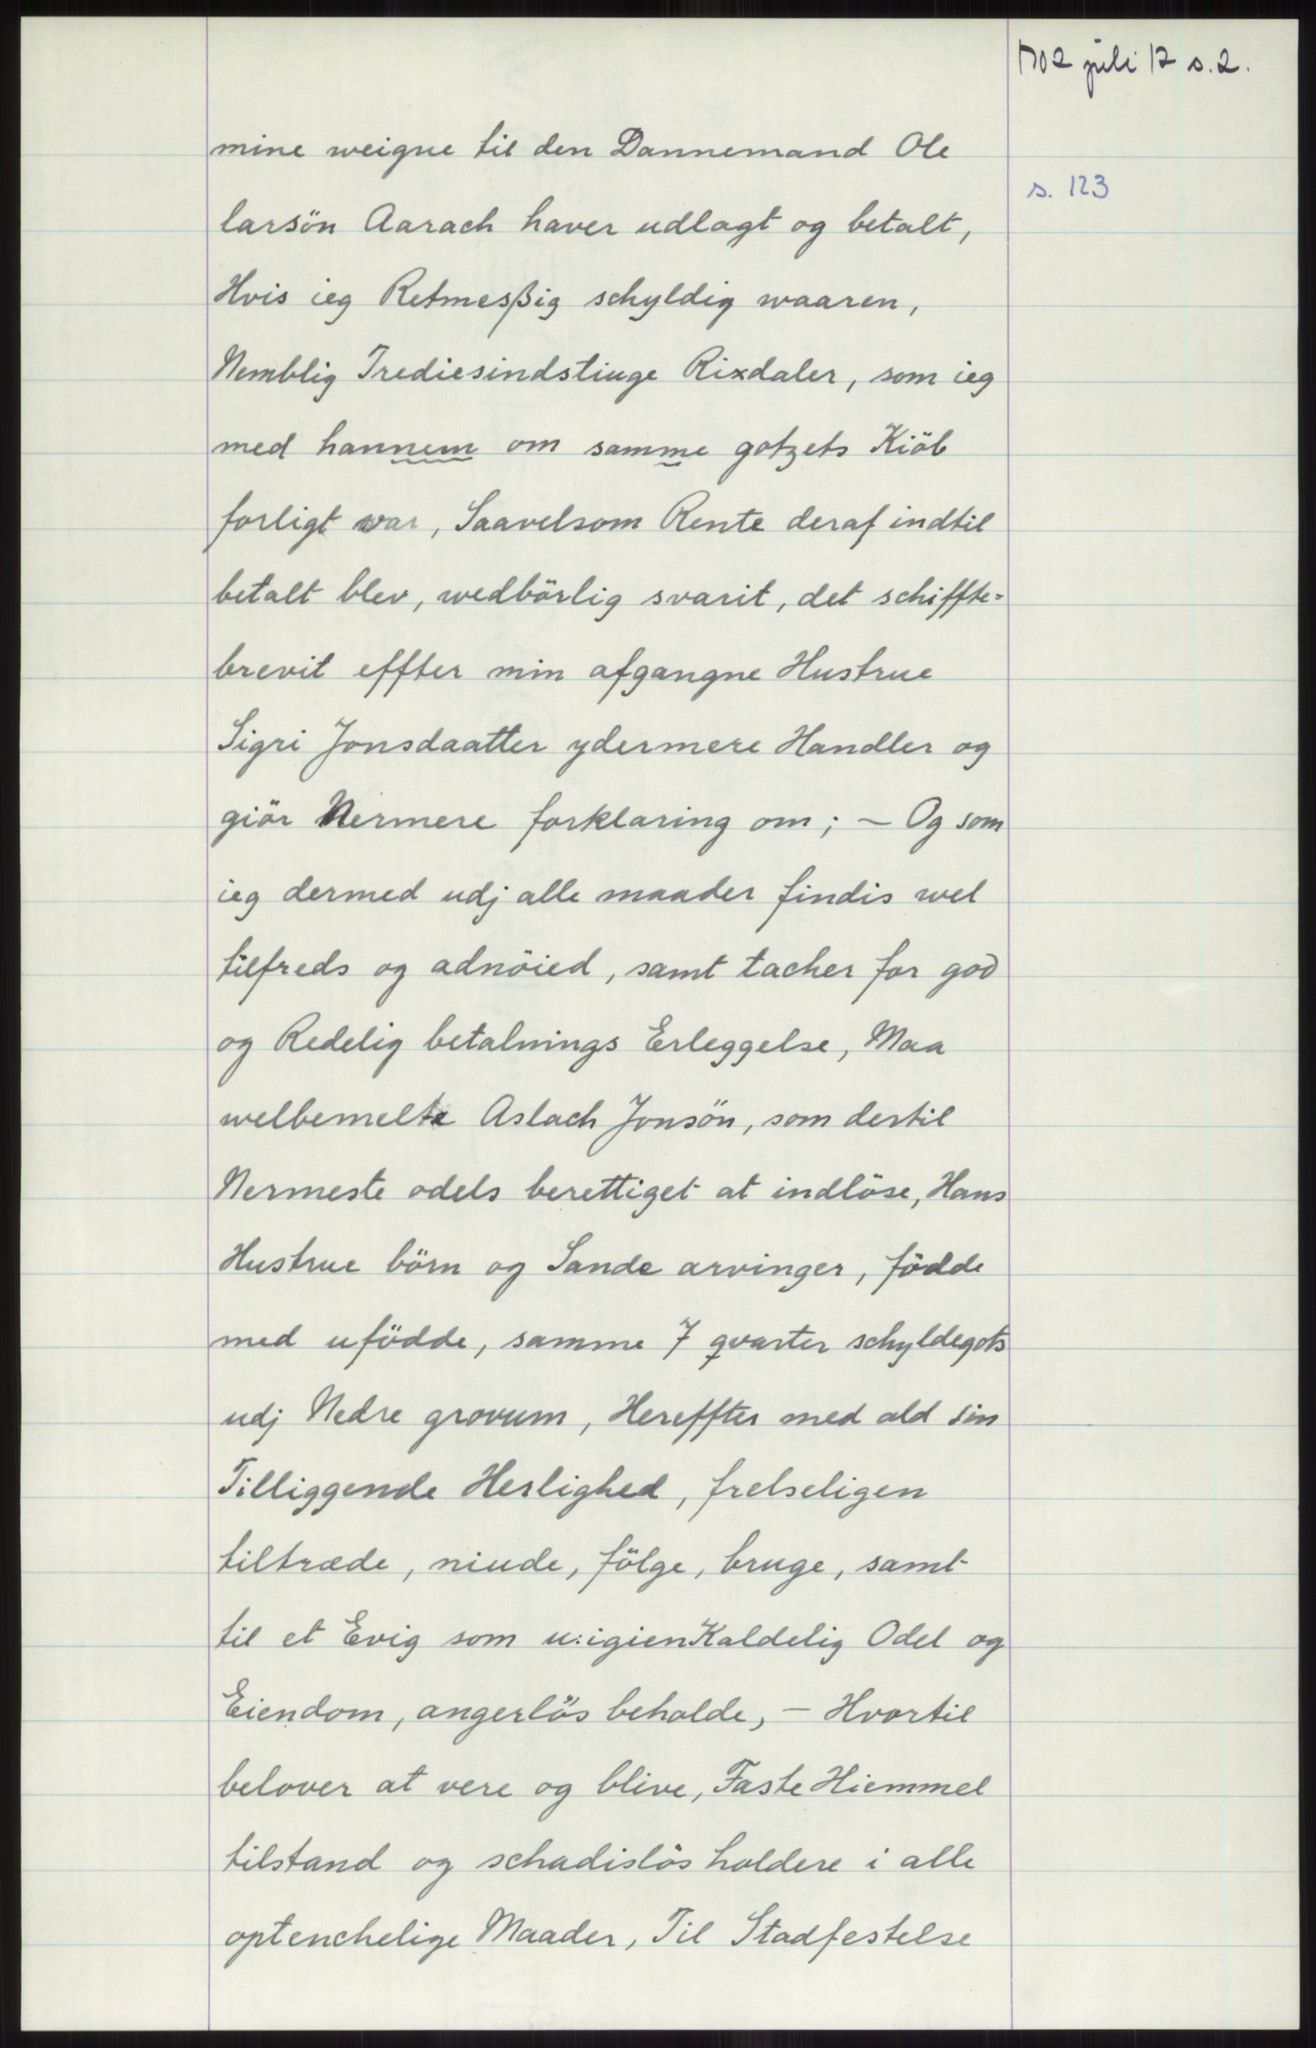 1702 juli 12 s. 2.
s. 123
mine weigne til den Dannemand Ole
larsön Aarach haver udlagt og betalt,
Hvis ieg Retmesßig schyldig waaren,
Nemblig Trediesindstiuge Rixdaler, som ieg
med hannem om samme gotzets Kiöb
forligt war, Saavelsom Rente deraf indtil
betalt blev, wedbörlig svarit, det schiffte=
brevit effter min afgangne Hustrue
Sigri Jonsdaatter ydermere Handler og
giör Nermere forklaring om; – Og som
ieg dermed udj alle maader findis wel
tilfreds og adnöied, samt tacher for god
og Redelig betalnings Erleggelse, Maa
welbemelte Aslach Jonsön, som dertil
Nermeste odels berettiget at indlöse, Hans
Hustrue börn og Sande arvinger, födde
med ufödde, samme 7 qvarter schyldegots
udj Nedre grovum, Hereffter med ald sin
Tilliggende Herlighed, frelseligen
tiltræde, niude, fölge, bruge, samt
til et Evig som u:igienKaldelig Odel og
Eiendom, angerlös beholde, – Hvortil
belover at vere og blive, Faste Hiemmel
tilstand og schadislös holdere i alle
optenchelige Maader, Til Stadfestelse